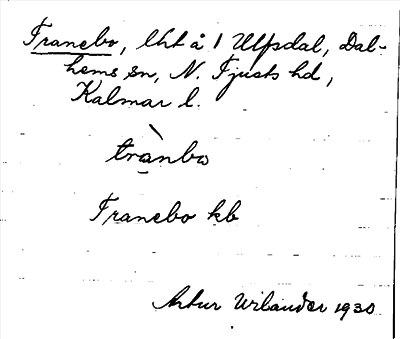 Tranebo, lht å 1 Ulfsdal, Dal-
hems sn, N. Tjusts hd,
Kalmar l.
trànbo
Tranebo kb
Artur Wilander 1930